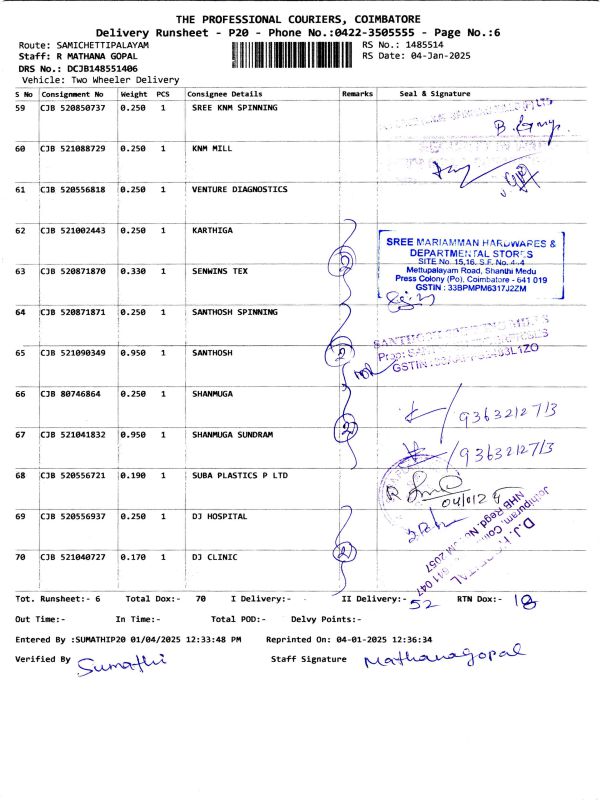 THE PROFESSIONAL COURIERS, COIMBATORE
Delivery Runsheet - P20 - Phone No.:0422-3505555 - Page No.:6
Route: SAMICHETTIPALAYAM RS No.: 1485514
Staff: R MATHANA GOPAL RS Date: 04-Jan-2025
DRS No.: DCJB148551406
Vehicle: Two Wheeler Delivery
S No Consignment No Weight PCS Consignee Details Remarks Seal & Signature
59 CJB 520850737 0.250 1 SREE KNM SPINNING
60 CJB 521088729 0.250 1 KNM MILL
61 CJB 520556818 0.250 1 VENTURE DIAGNOSTICS
62 CJB 521002443 0.250 1 KARTHIGA
SREE MARIAMMAN HARDWARES &
DEPARTMENTAL STORES
SITE No. 15,16, S.F. No.
63 CJB 520871870 0.330 1 SENWINS TEX 2 Mettupalayam Road, Shanthi Medu
Press Colony (Po), Coimbatore - 641 019
GSTIN : 33BPMPM6317J2ZM
64 CJB 520871871 0.250 1 SANTHOSH SPINNING
65 CJB 521090349 0.950 1 SANTHOSH 2
GSTIN
66 CJB 80746864 0.250 1 SHANMUGA 9363212713
67 CJB 521041832 0.950 1 SHANMUGA SUNDRAM 2 9363212713
68 CJB 520556721 0.190 1 SUBA PLASTICS P LTD
69 CJB 520556937 0.250 1 DJ HOSPITAL
70 CJB 521040727 0.170 1 DJ CLINIC 2
Tot. Runsheet:- 6 Total Dox:- 70 I Delivery:- II Delivery:- 52 RTN Dox:- 18
Out Time:- In Time:- Total POD:- Delvy Points:-
Entered By :SUMATHIP20 01/04/2025 12:33:48 PM Reprinted On: 04-01-2025 12:36:34
Verified By Sumathi Staff Signature Mathanagopal